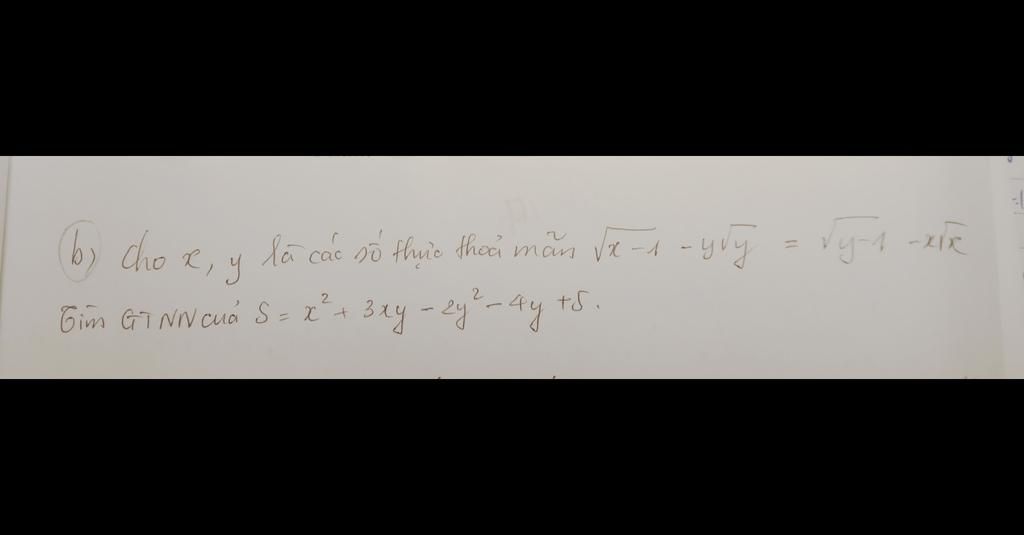 b) Cho x, y là các số thực thoả mãn √(x-1) - y√y = √(y-1) - x√x
Tìm GTNN của S = x² + 3xy - 2y² - 4y + 5.